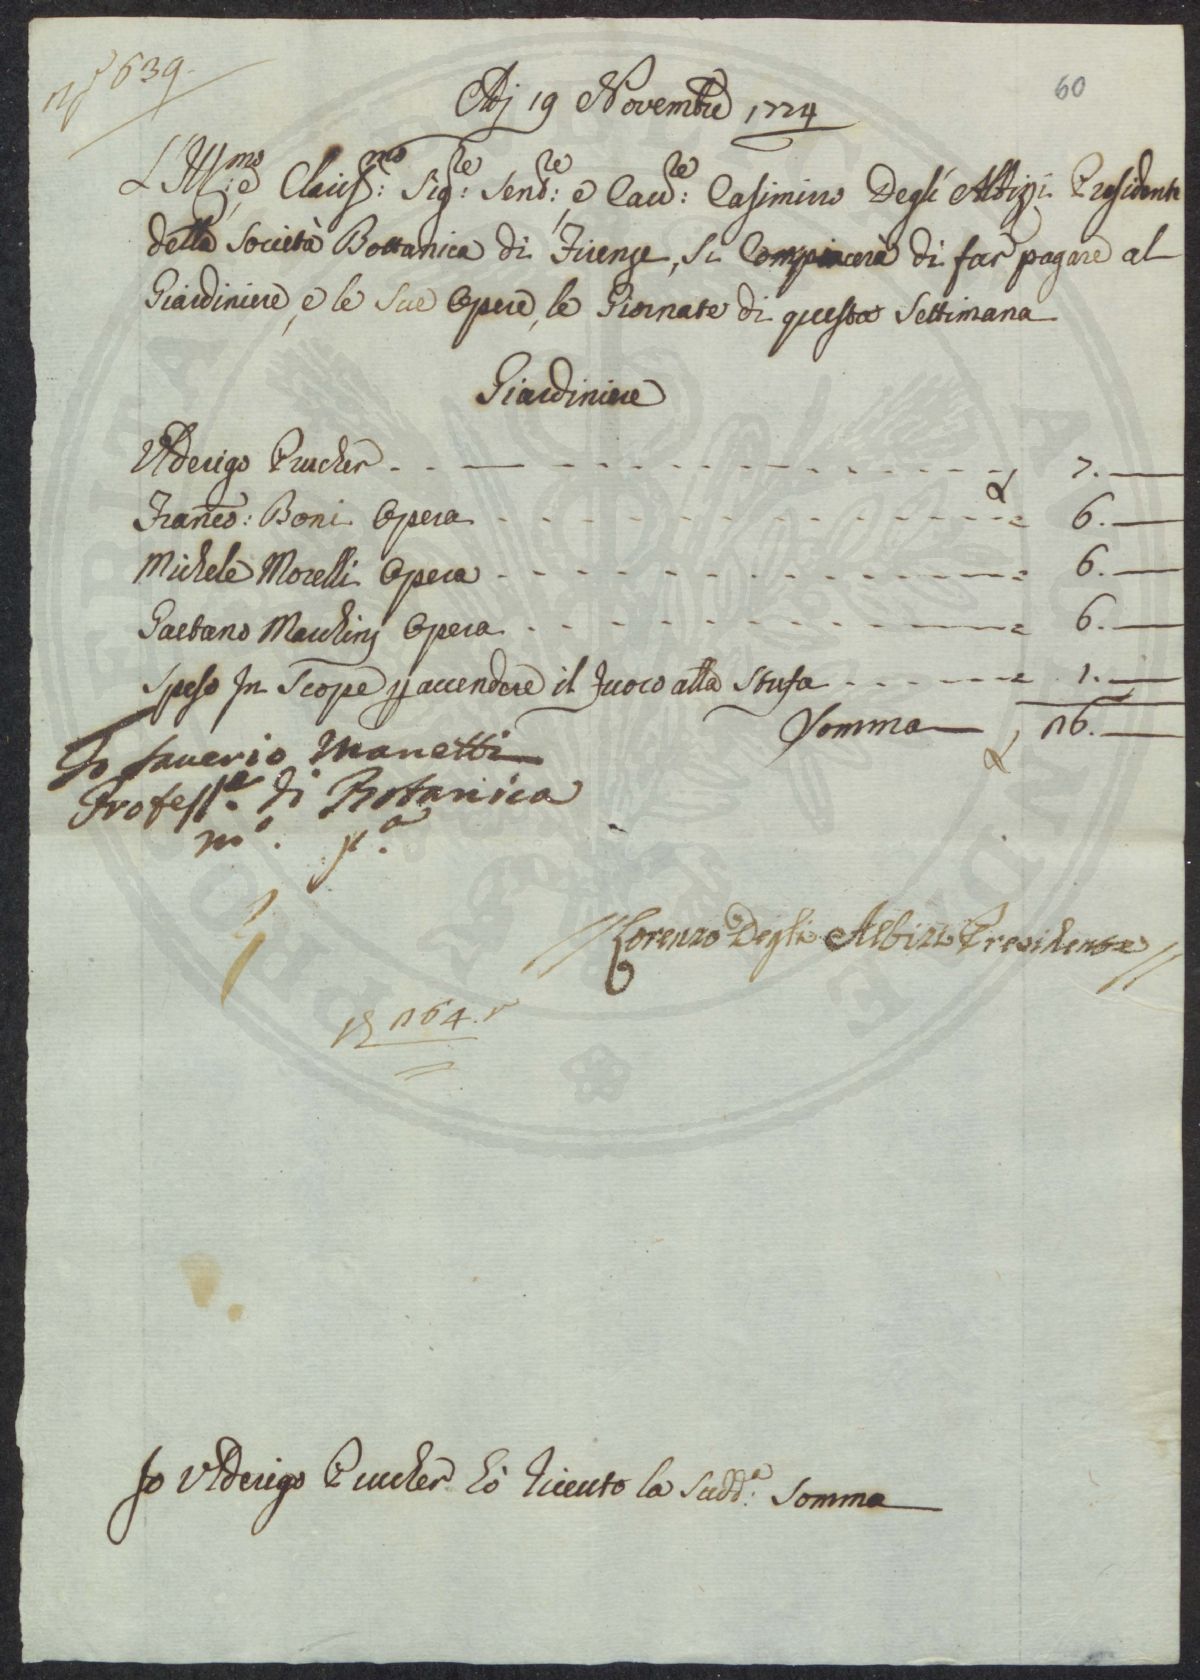 N° 639.
60
Adj 19 Novembre 1774
L'Ill:mo e Clariss:mo Sig:re Send:re e Cav:re Casimirro Degli Albizzi Presidente
della Società Bottanica di Firenze, Si Compiacerà di far pagare al
Giardiniere, e le Sue Opere, le Giornate di questa Settimana
Giardiniere
Ulderigo Prucher - - - 7. —
Franco: Boni Opera - - - 6. —
Michele Morelli Opera - - - 6. —
Gaetano Marchinj Opera - - - 6. —
Speso In Scope p accendere il fuoco alla Stufa - - - 1. —
Somma — 26. —
Io Saverio Manetti
Profess.e di Botanica
m.o p.a
// Lorenzo Degli Albizi Presidente //
164.
Io Ulderigo Prucher hò riceuto la Sudd:a Somma